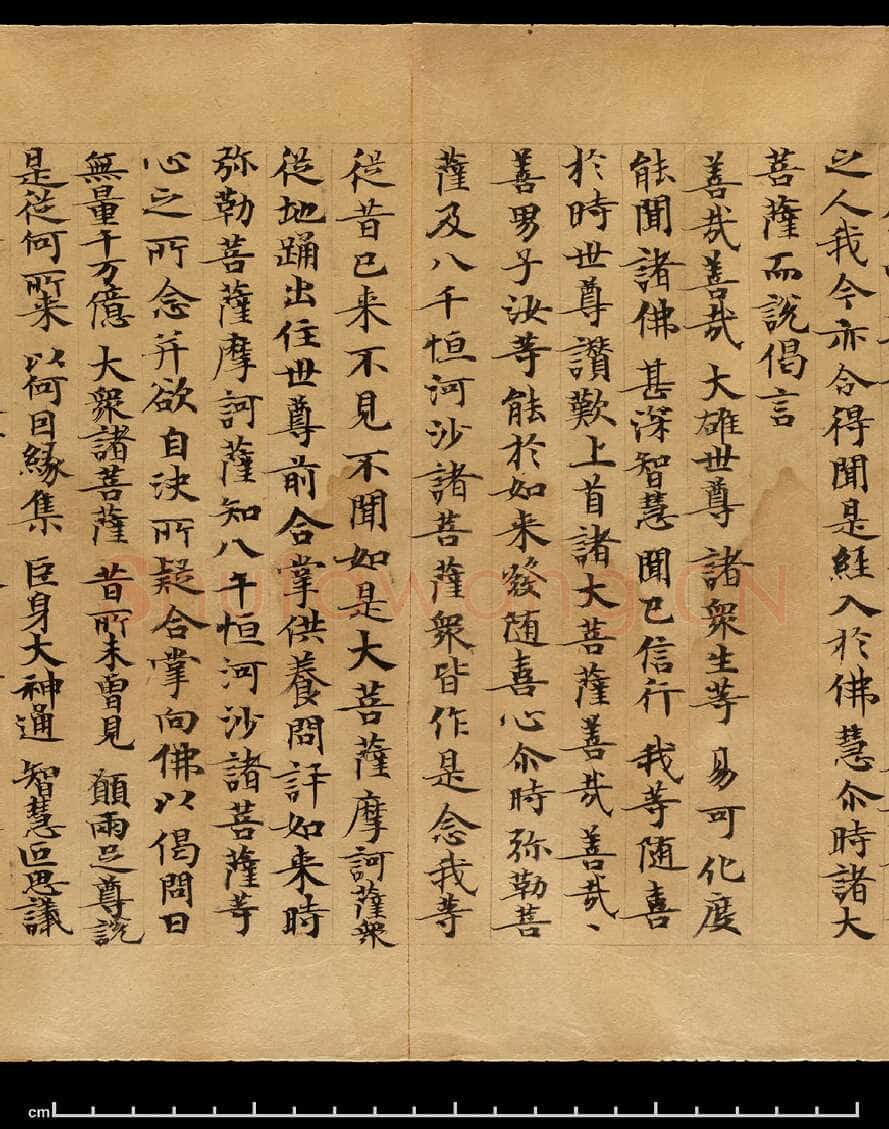 之人我今亦令得聞是經入於佛慧尒時諸大
菩薩而說偈言
善哉善哉 大雄世尊 諸衆生等 易可化度
能聞諸佛 甚深智慧 聞已信行 我等随喜
於時世尊讚歎上首諸大菩薩善哉善哉、
善男子汝等能於如来發随喜心尒時弥勒菩
薩及八千恒河沙諸菩薩衆皆作是念我等
從昔已来不見不聞如是大菩薩摩訶薩衆
從地踊出住世尊前合掌供養問訊如来時
弥勒菩薩摩訶薩知八千恒河沙諸菩薩等
心之所念并欲自決所疑合掌向佛以偈問曰
無量千万億 大衆諸菩薩 昔所未曾見 願兩足尊說
是從何所来 以何因緣集 巨身大神通 智慧叵思議
Shufawang.CN
cm